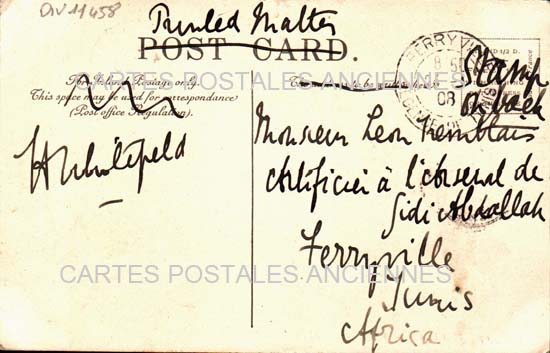 DIV11458
Printed Matter
POST CARD.
For Inland Postage only.
This space may be used for correspondance
(Post office Regulation.)
to be
FERRYVILLE
8
08
Stamp
on back
CARTES POSTALES ANCIENNES
Monsieur Leon Tremblais
Artificier à l'Arsenal de
Sidi Abdallah
Ferryville
Tunis
Africa
CARTES POSTALES ANCIENNES